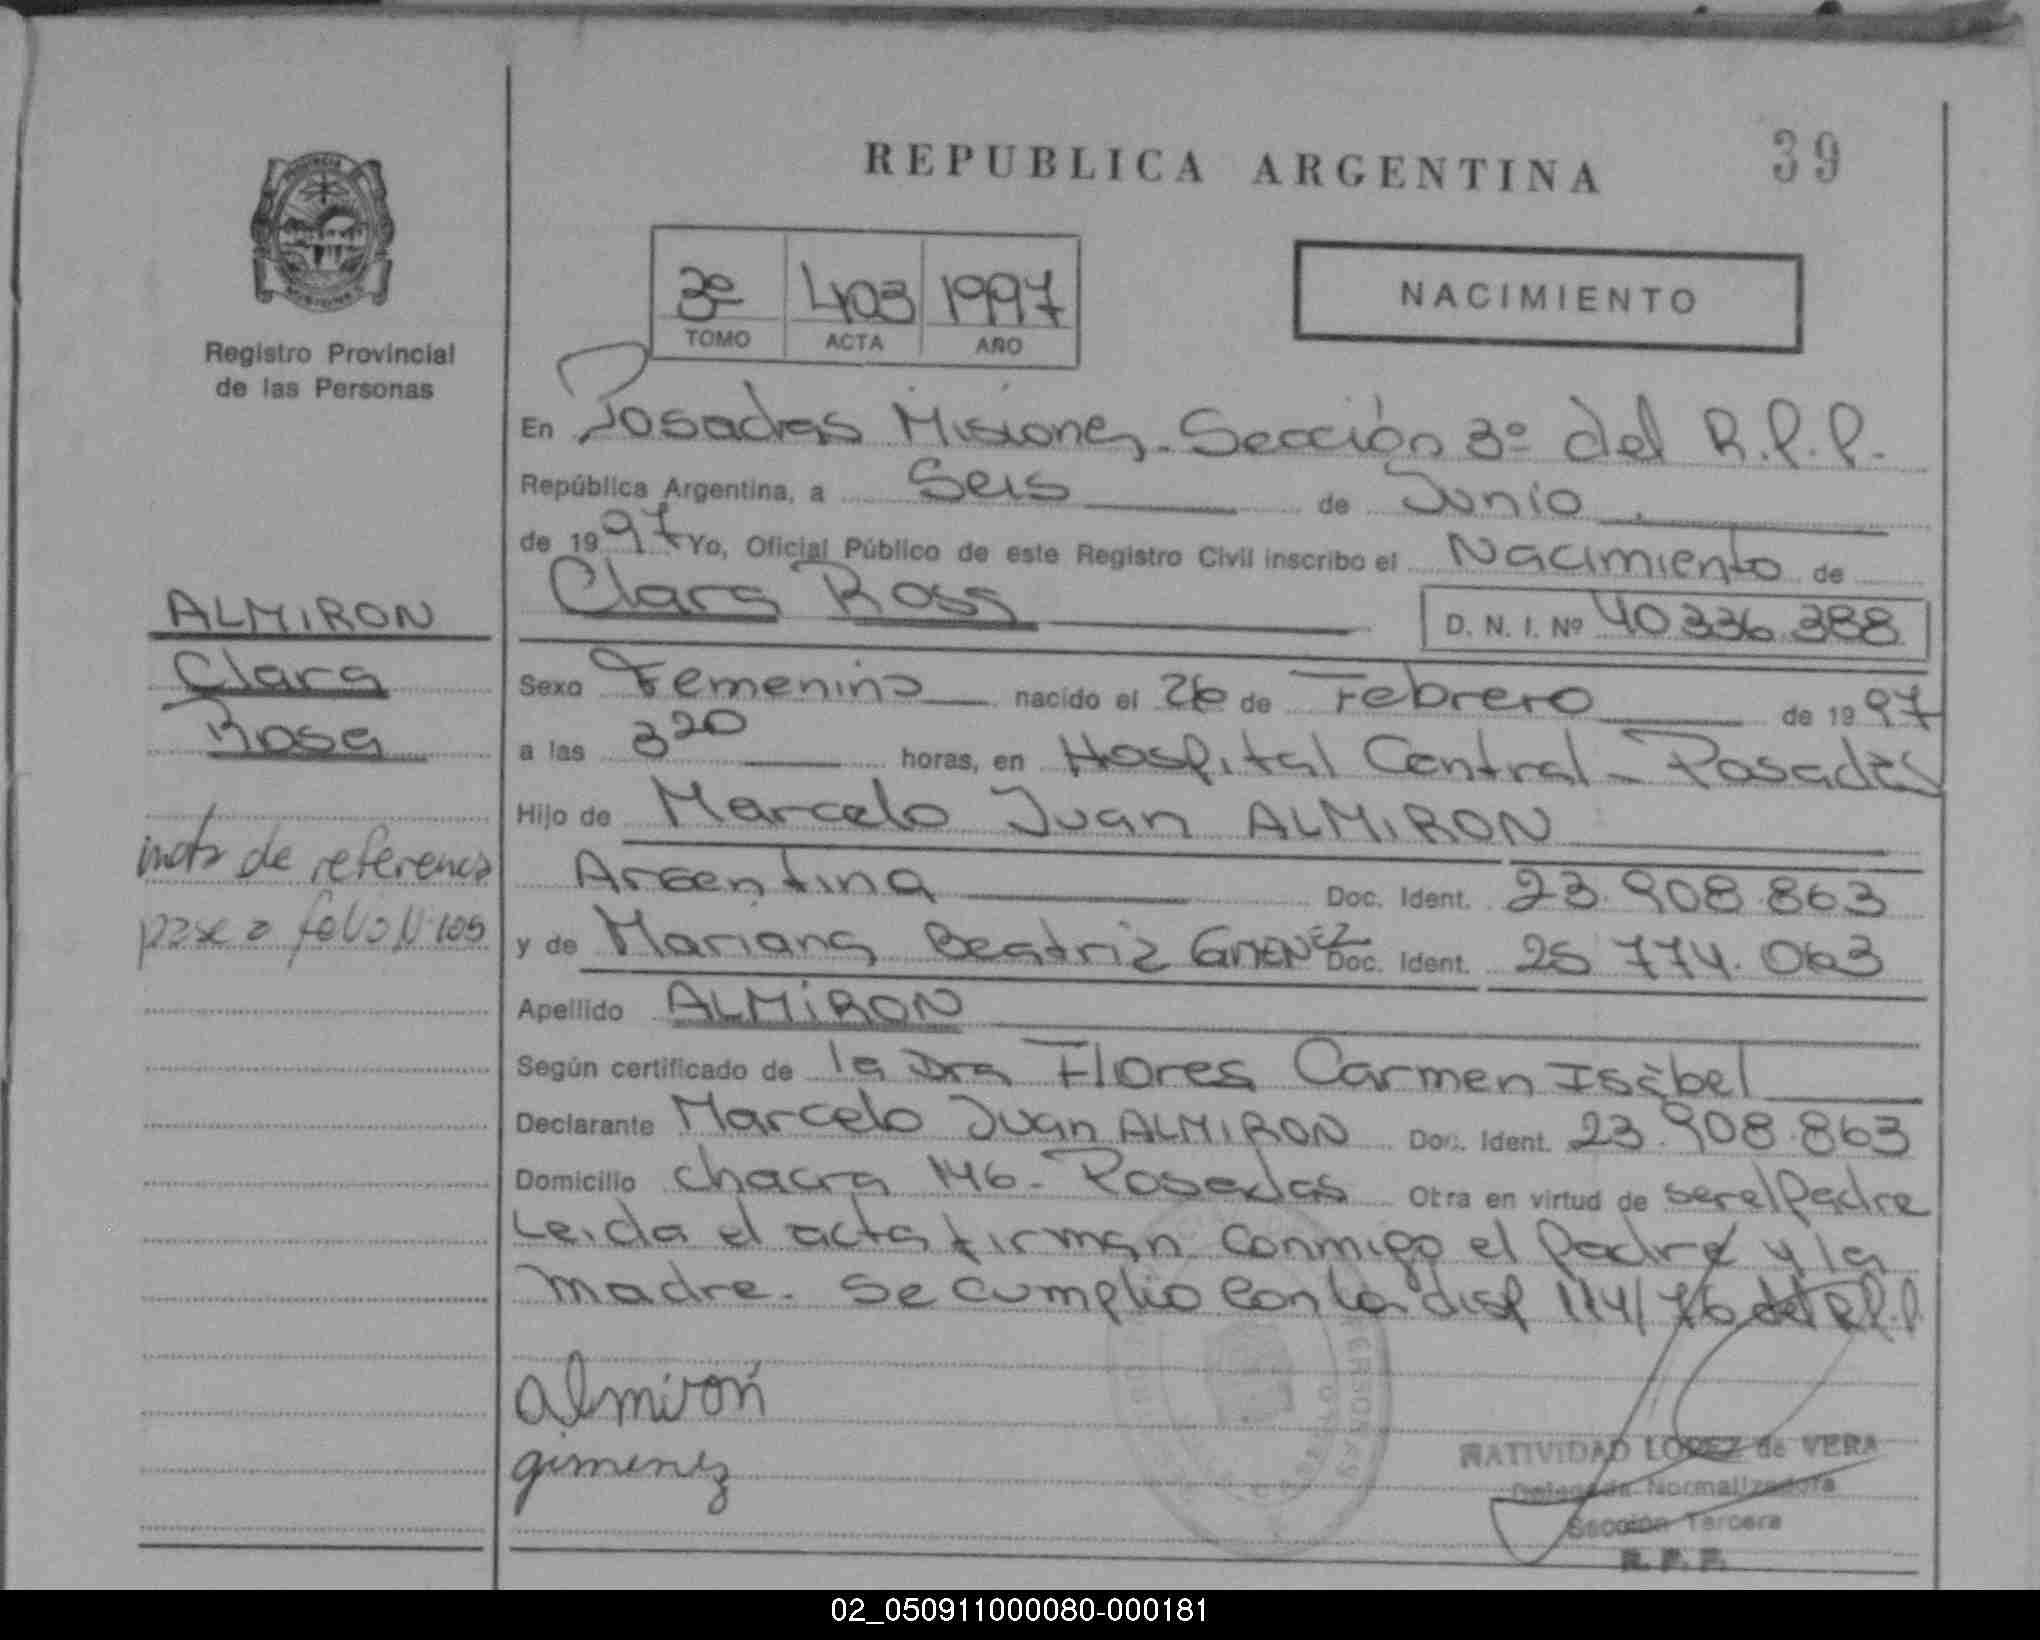 REPUBLICA ARGENTINA
39
3º 403 1997
TOMO ACTA AÑO
NACIMIENTO
Registro Provincial
de las Personas
En Posadas Misiones. Sección 3º del R.P.P.
República Argentina, a Seis de Junio
de 1997 Yo, Oficial Público de este Registro Civil inscribo el Nacimiento de
Clara Rosa
D. N. I. Nº 40 336 388
ALMIRON
Clara
Rosa
Sexo Femenino nacido el 26 de Febrero de 1997
a las 3 20 horas, en Hospital Central - Posadas
Hijo de Marcelo Juan ALMIRON
Argentina Doc. Ident. 23.908.863
y de Mariana Beatriz GIMENEZ Doc. Ident. 25 774.063
nota de referencia
pase a folio Nº 105
Apellido ALMIRON
Según certificado de la Dra Flores Carmen Isabel
Declarante Marcelo Juan ALMIRON Doc. Ident. 23.908.863
Domicilio chacra 146- Posadas Otra en virtud de ser el Padre
Leida el acta firman conmigo el Padre y la
madre. Se cumplio con la disp 114/76 del R.P.P.
almirón
gimenez
NATIVIDAD LOPEZ de VERA
Delegada Normalizadora
Sección Tercera
R. P. P.
02_050911000080-000181